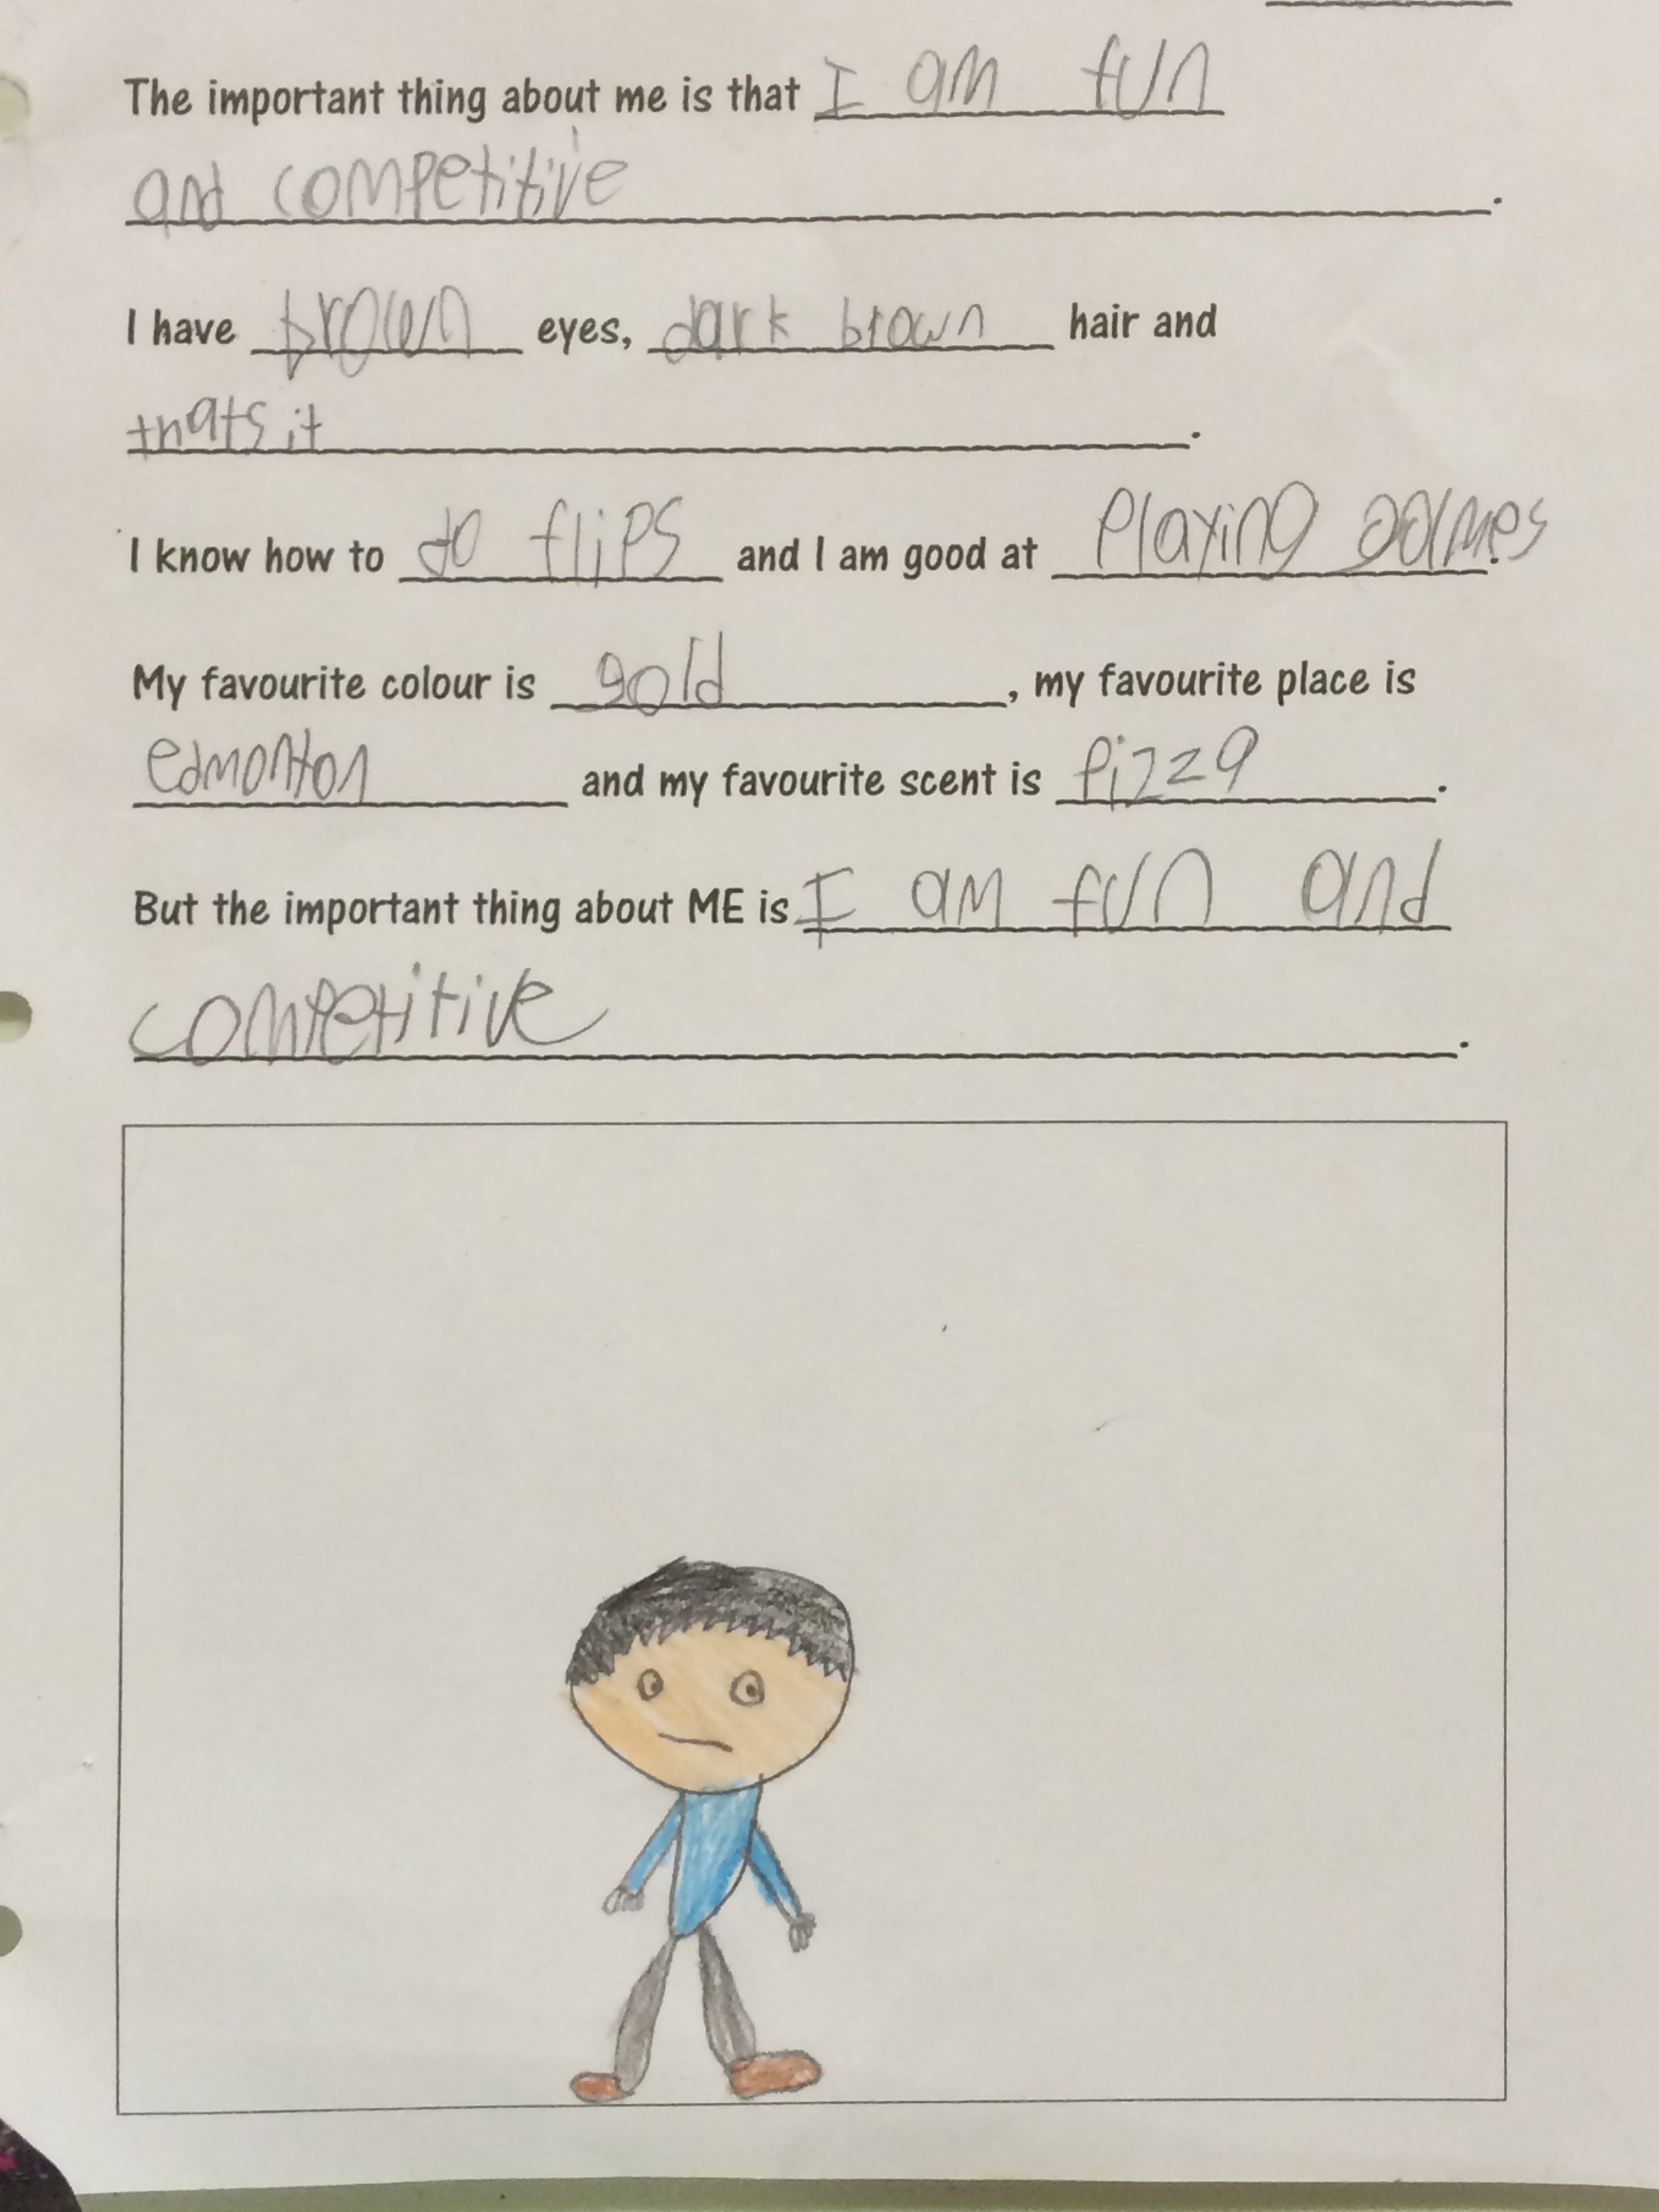 The important thing about me is that I am fun
and competitive.
I have brown eyes, dark brown hair and
thats it.
I know how to do flips and I am good at Playing games.
My favourite colour is gold, my favourite place is
edmonton and my favourite scent is Pizza.
But the important thing about ME is I am fun and
competitive.